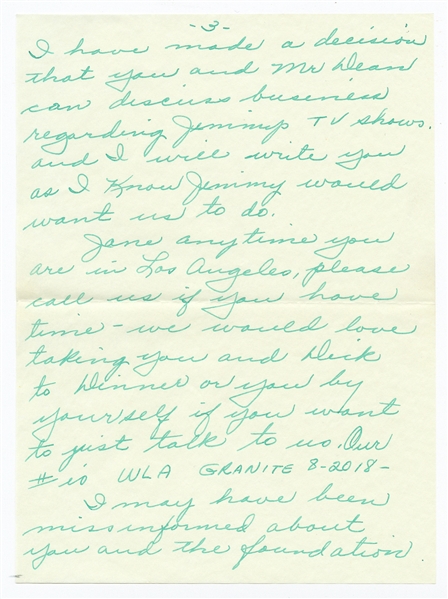 -3-
I have made a decision
that you and Mr Dean
can discuss business
regarding Jimmys TV shows.
and I will write you
as I Know Jimmy would
want us to do.
Jane anytime you
are in Los Angeles, please
call us if you have
time - we would love
taking you and Dick
to Dinner or you by
yourself if you want
to just talk to us. Our
# is WLA GRANITE 8-2018-
I may have been
missinformed about
you and the foundation